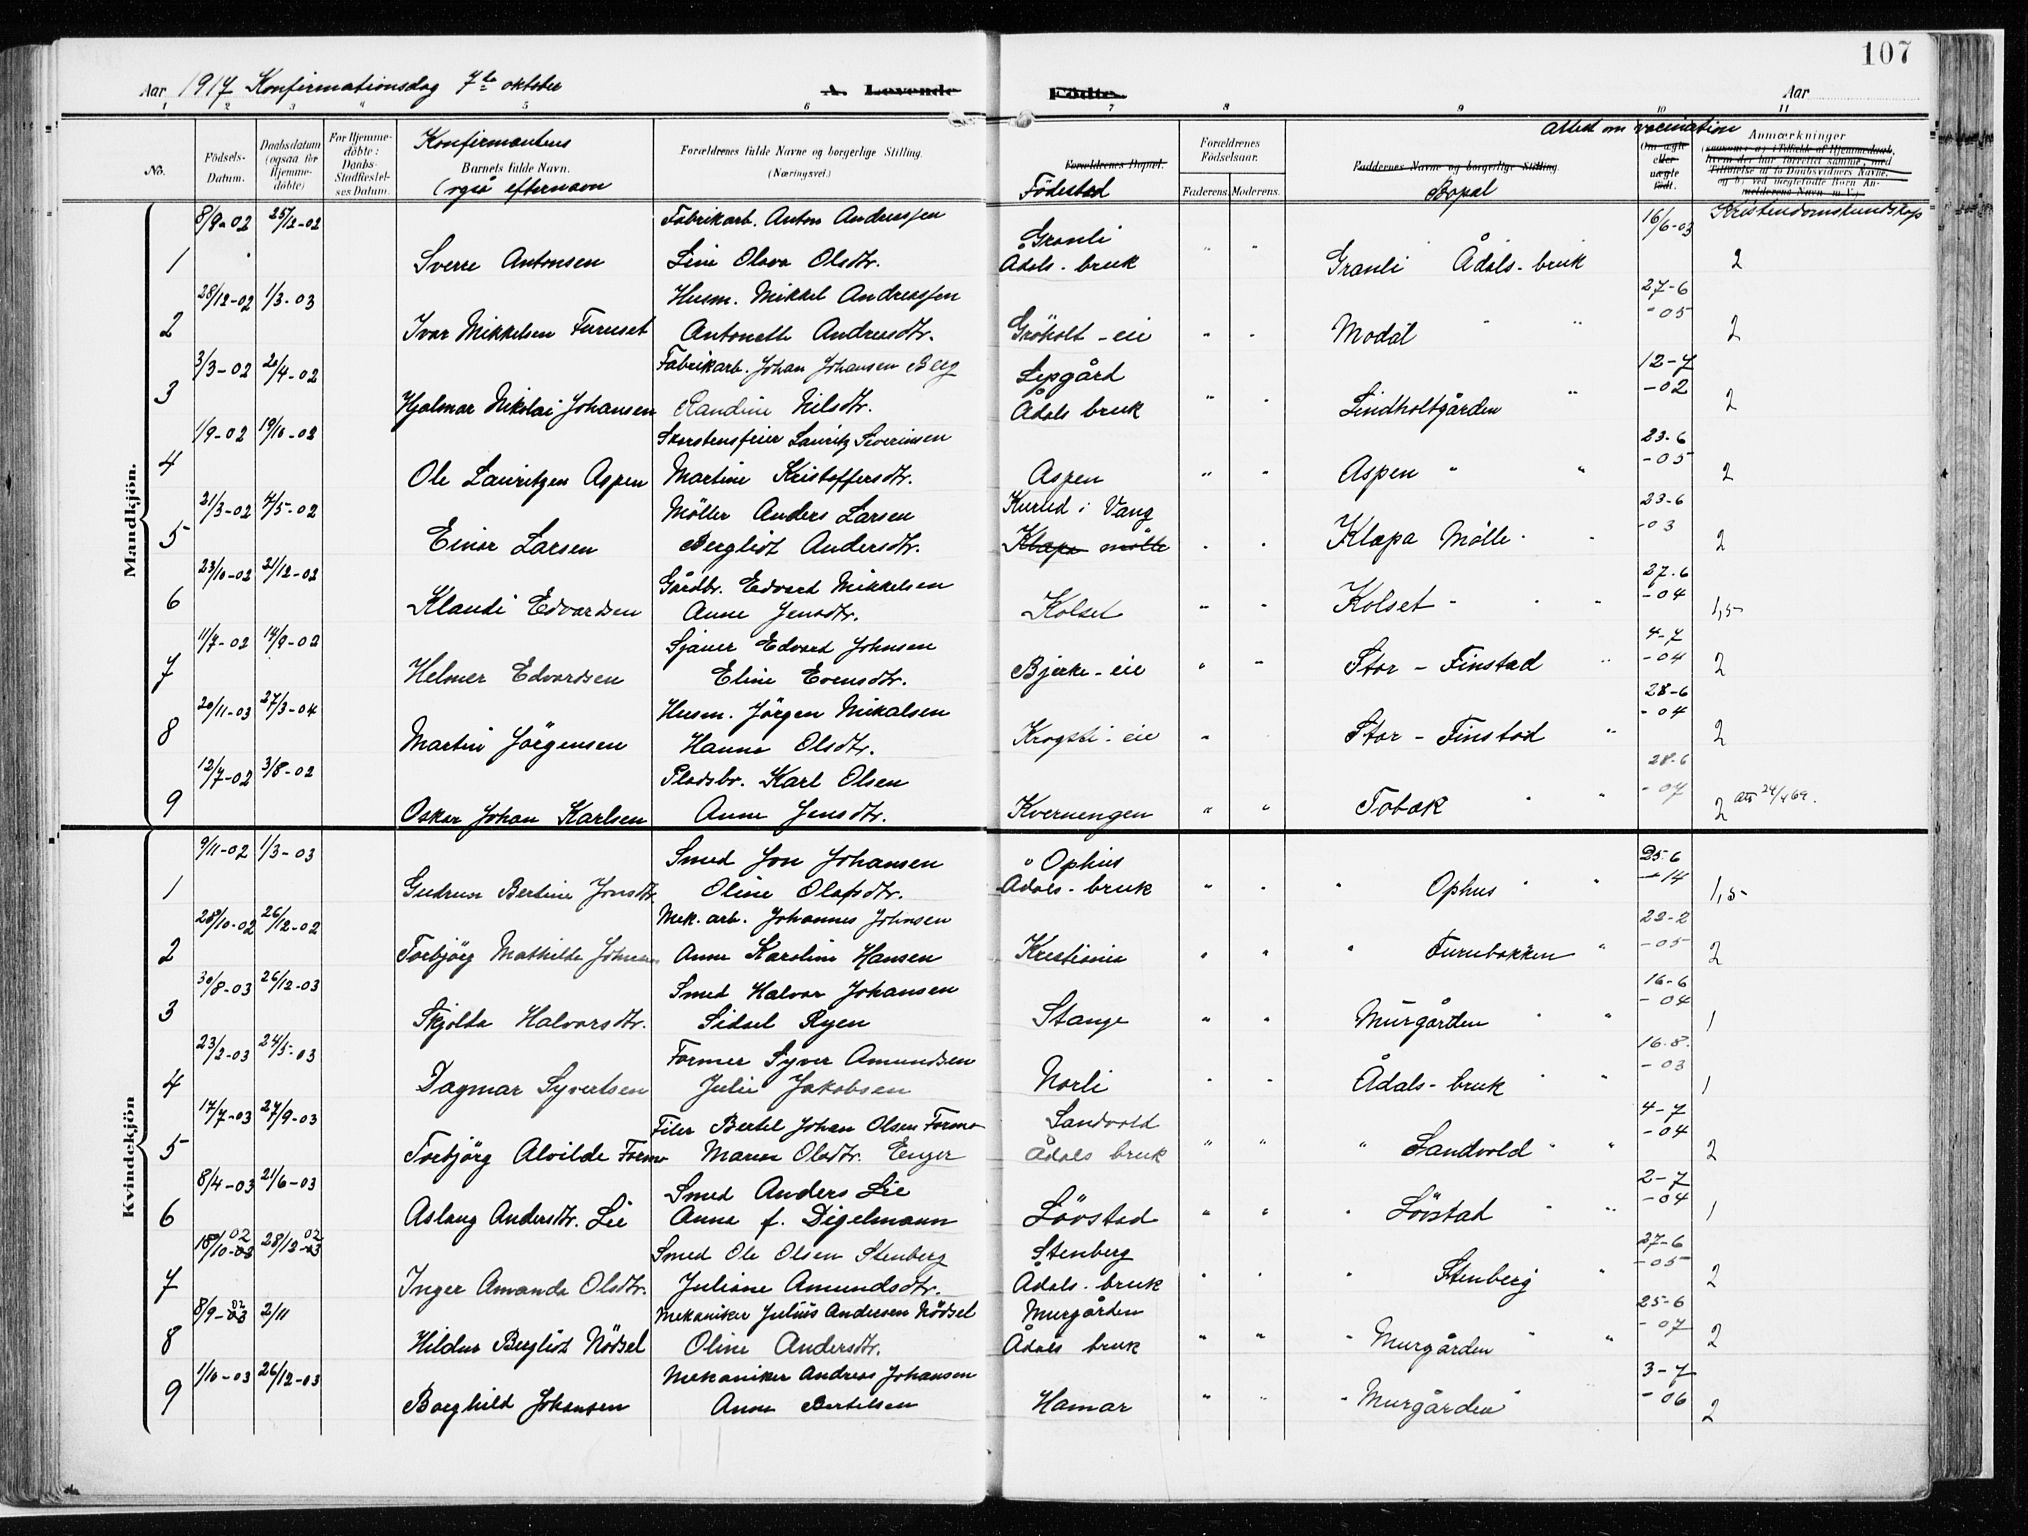 107
Aar 1917 Konfirmationsdag 7de oktober A. Levende Fødte. Aar
1 2 3 4 5 6 7 8 9 10 11
No. Fødsels-Datum. Daabsdatum (ogsaa for Hjemmedøbte) For Hjemmedøbte: Daabs-Stadfæstelses Datum. Konfirmantens Barnets fulde Navn. (også efternavn Forældrenes fulde Navne og borgerlige Stilling. (Næringsvei.) Forældrenes Bopæl. Fødested Forældrenes Fødselsaar. Faderens. Moderens. Faddernes Navne og borgerlige Stilling. Bopæl Attest om vacination Om ægte eller uægte født. Anmærkninger
Kristendomskundskap
Mandkjön.
8/9-02 25/12-02 Fabrikarb. Anton Andreassen Granli 16/6-03
1 Sverre Antonsen Line Olava Olsdtr. Ådals-bruk " " Granli Ådals-bruk 2
28/12-02 1/3-03 Husm. Mikkel Andreassen 27-6
2 Ivar Mikkelsen Furuset Antonette Andreasdtr. Gröholt-eie " " Modal " " -05 2
3/3-02 20/4-02 Fabrikarb. Johan Johansen Berg Lepgård 12-7
3 Hjalmar Nikolai Johansen Randine Nilsdtr. Ådals bruk " " Lindholtgården " -02 2
1/9-02 19/10-02 Skorstensfeier Lauritz Severinsen 23-6
4 Ole Lauritzen Aspen Martine Kristoffersdtr. Aspen " " Aspen " " -05 2
31/3-02 4/5-02 Möller Anders Larsen Kurlid i Vang 23-6
5 Einar Larsen Bergliot Andersdtr. Klæpa mölle " " Klæpa Mölle " " -03 2
23/10-02 21/12-02 Gårdbr. Edvard Mikkelsen 27-6
6 Klaudi Edvardsen Anne Jensdtr. Kolset " " Kolset " " " -04 1,5
11/7-02 14/9-02 Sjauer Edvard Johnsen 4-7
7 Helmer Edvardsen Eline Evensdtr. Bjerke-eie " " Stor-Finstad " -04 2
20/11-03 27/3-04 Husm. Jörgen Mikalsen 28-6
8 Martin Jörgensen Hanna Olsdtr. Krogsti-eie " Stor-Finstad " -04 2
12/7-02 3/8-02 Pladsbr. Karl Olsen 28-6
9 Oskar Johan Karlsen Anne Jensdtr. Kvernengen " " Tobæk " " -07 2 att 24/4 69.
Kvindekjön
9/11-02 1/3-03 Smed Jon Johansen Ophus 25-6
1 Gudrun Bertine Jonsdtr. Oline Olafsdtr. Ådals-bruk " " " Ophus " " -14 1,5
28/10-02 26/12-02 Mek. arb. Johannes Johnsen 22-2
2 Torbjörg Mathilde Johnsen Anne Karoline Hansen Kristiania " " " Furubakken " -05 2
30/8-03 26/12-03 Smed Halvor Johansen 16-6
3 Skjolda Halvorsdtr. Sidsel Ryen Stange " " Murgården " " -04 1
23/2-03 24/5-03 Former Syver Amundsen 16-8
4 Dagmar Syvertsen Julie Jakobsen Norli " " Ådals-bruk " " -03 1
17/7-03 27/9-03 Filer Bertel Johan Olsen Formo Sandvold 4-7
5 Torbjörg Alvilde Formo Maren Olsdtr. Enger Ådals bruk " " " Sandvold " " -04 2
8/4-03 21/6-03 Smed Anders Lie 2-7
6 Aslaug Andersdtr. Lie Anna f. Digelmann Lövstad " " " Lövstad " " -04 1
18/10-03 02 28/12-03 02 Smed Ole Olsen Stenberg Stenberg 27-6
7 Inger Amanda Olsdtr. Juliane Amundsdtr. Ådals-bruk " " " Stenberg " -05 2
8/9-03 02 2/11 Mekaniker Julius Andersen Nödsel Murgården 25-6
8 Hildur Bergliot Nödsel Oline Andersdtr. Ådals bruk " " " Murgården " " -07 2
1/10-03 26/12-03 Mekaniker Andreas Johansen 3-7
9 Borghild Johansen Anna Bertelsen Hamar " " " Murgården " -06 2